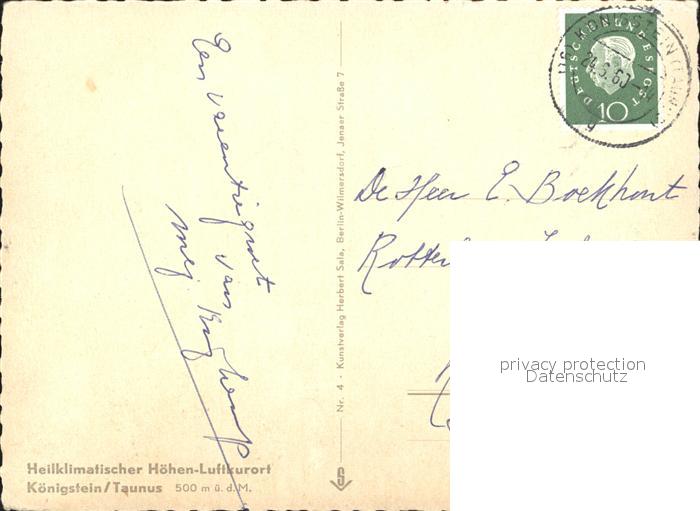 Een vacantiegroet
van
mej.
De Heer E. Boekhout
Rotter
Nr. 4 - Kunstverlag Herbert Sala, Berlin-Wilmersdorf, Jenaer Straße 7
DEUTSCHE BUNDESPOST
10
KÖNIGSTEIN (TAUNUS)
24.6.60
Heilklimatischer Höhen-Luftkurort
Königstein/Taunus 500 m ü. d. M.
S
privacy protection
Datenschutz